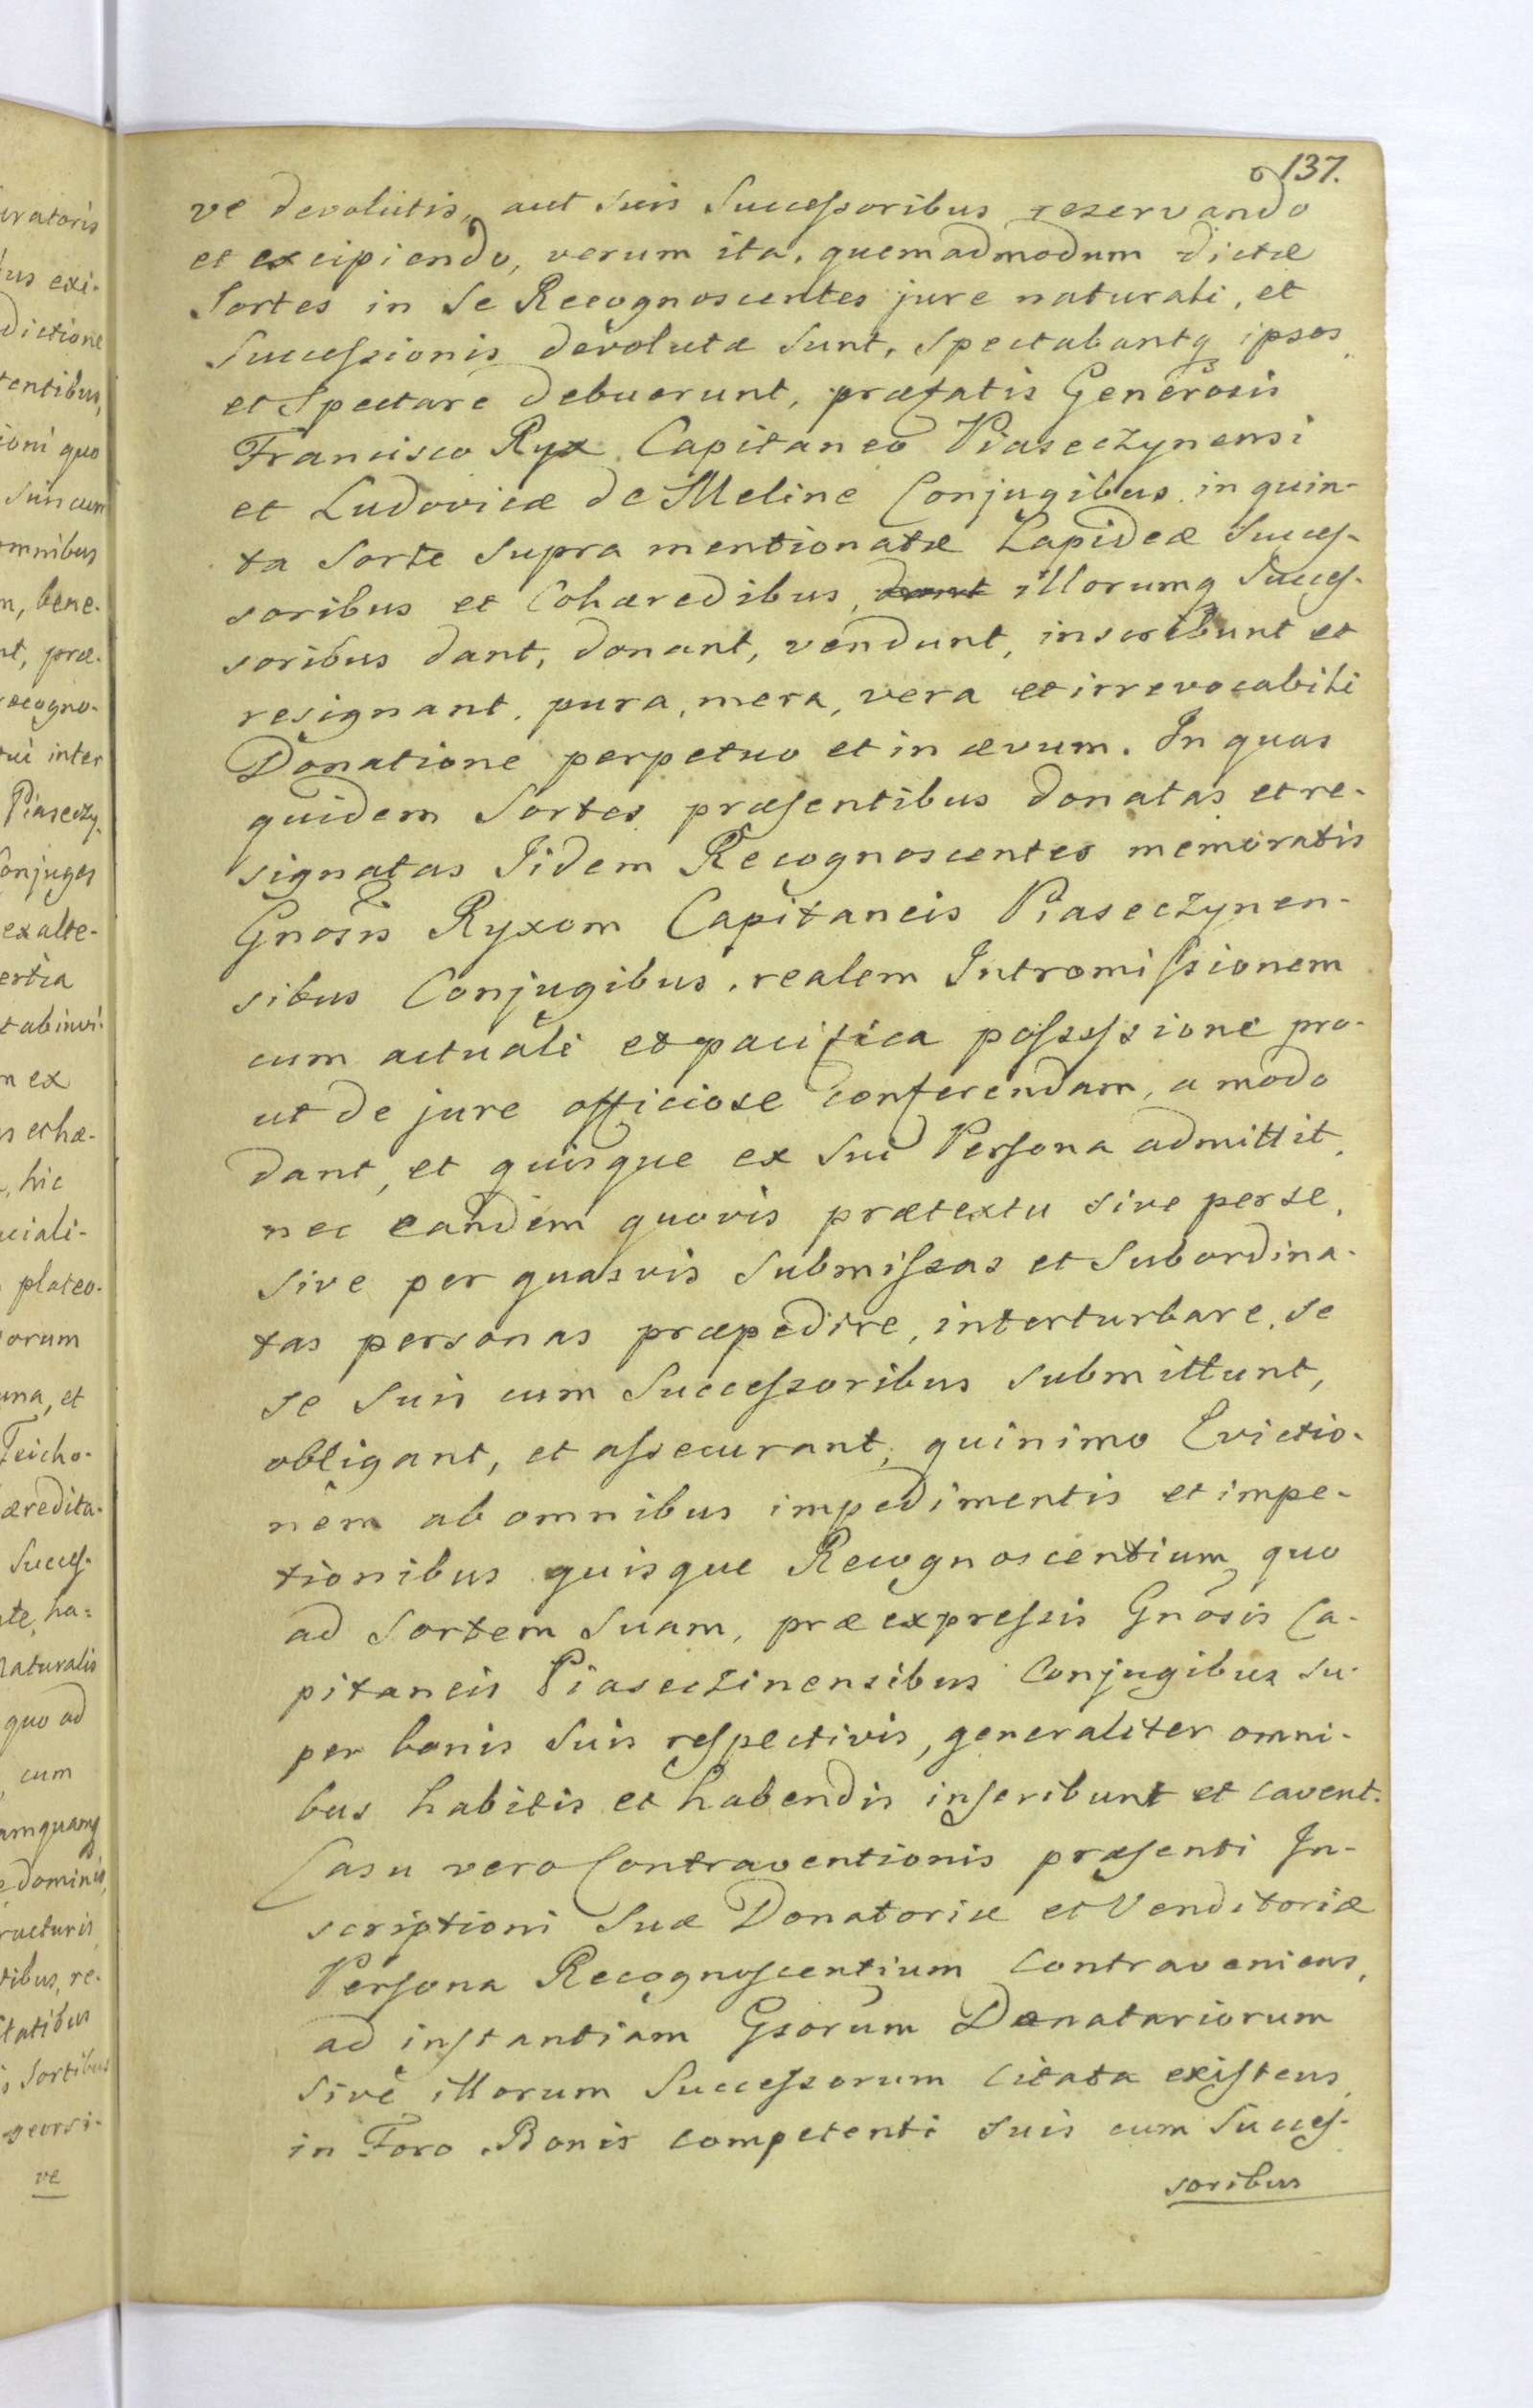 137.
ve devolutis, aut suis Successoribus reservando
et excipiendo, verum ita, quemadmodum dictæ
Sortes in se Recognoscentes jure naturali, et
Successionis devolutæ sunt, spectabantq ipsos,
et spectare debuerunt, præfatis Generosis
Francisco Ryx Capitaneo Piaseczynensi
et Ludovicæ de Meline Conjugibus in quin-
ta Sorte supra mentionatæ Lapideæ Succes-
soribus et Cohæredibus, dant illorumq Succes-
soribus dant, donant, vendunt, inscribunt et
resignant, pura, mera, vera et irrevocabili
Donatione perpetuo et in ævum. In quas
quidem Sortes præsentibus donatas et re-
signatas Iidem Recognoscentes memoratis
Gnosis Ryxom Capitaneis Piaseczynen-
sibus Conjugibus, realem Intromissionem
cum actuali et pacifica possessione pro-
ut de jure officiose conferendam, a modo
dant, et quisque ex sui Persona admittit,
nec eandem quovis prætextu sive per se,
sive per quasvis submissas et subordina-
tas personas præpedire, interturbare, se
se suis cum Successoribus submittunt,
obligant, et assecurant, quinimo Evictio-
nem ab omnibus impedimentis et impe-
tionibus quisque Recognoscentium quo
ad Sortem suam, præexpressis Gnosis Ca-
pitaneis Piaseczinensibus Conjugibus su-
per bonis suis respectivis, generaliter omni-
bus habitis et habendis inscribunt et cavent.
Casu vero Contraventionis præsenti In-
scriptioni suæ Donatoriæ et Venditoriæ
Persona Recognoscentium Contraveniens,
ad instantiam Gsorum Donatariorum
sive illorum Successorum citata existens,
in Foro Bonis competenti suis cum Succes-
soribus
uratoris
bus exi-
dictione
tentibus,
ioni quo
suis cum
omnibus
m, bene-
nt, præ-
recogno-
tui inter
Piaseczy-
Conjuges
ex alte-
ertia
t ab invi-
n ex
s et hæ-
, hic
aciali-
plateo-
iorum
una, et
Teicho-
æredita-
Succes-
te, ha-
naturalis
quo ad
cum
amquamq
e dominis,
ructuris
tibus, re-
tatibus
s Sortibus
georsi-
ve